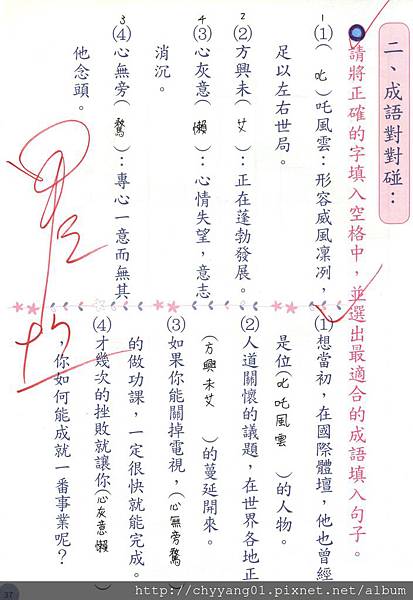 二、成語對對碰：
請將正確的字填入空格中，並選出最適合的成語填入句子。
1
⑴（叱）吒風雲：形容威風凜冽，
足以左右世局。
2
⑵方興未（艾）：正在蓬勃發展。
4
⑶心灰意（懶）：心情失望，意志
消沉。
3
⑷心無旁（騖）：專心一意而無其
他念頭。
⑴想當初，在國際體壇，他也曾經
是位（叱吒風雲）的人物。
⑵人道關懷的議題，在世界各地正
（方興未艾）的蔓延開來。
⑶如果你能關掉電視，（心無旁騖）
的做功課，一定很快就能完成。
⑷才幾次的挫敗就讓你（心灰意懶）
，你如何能成就一番事業呢？
37
http://chyyang01.pixnet.net/album